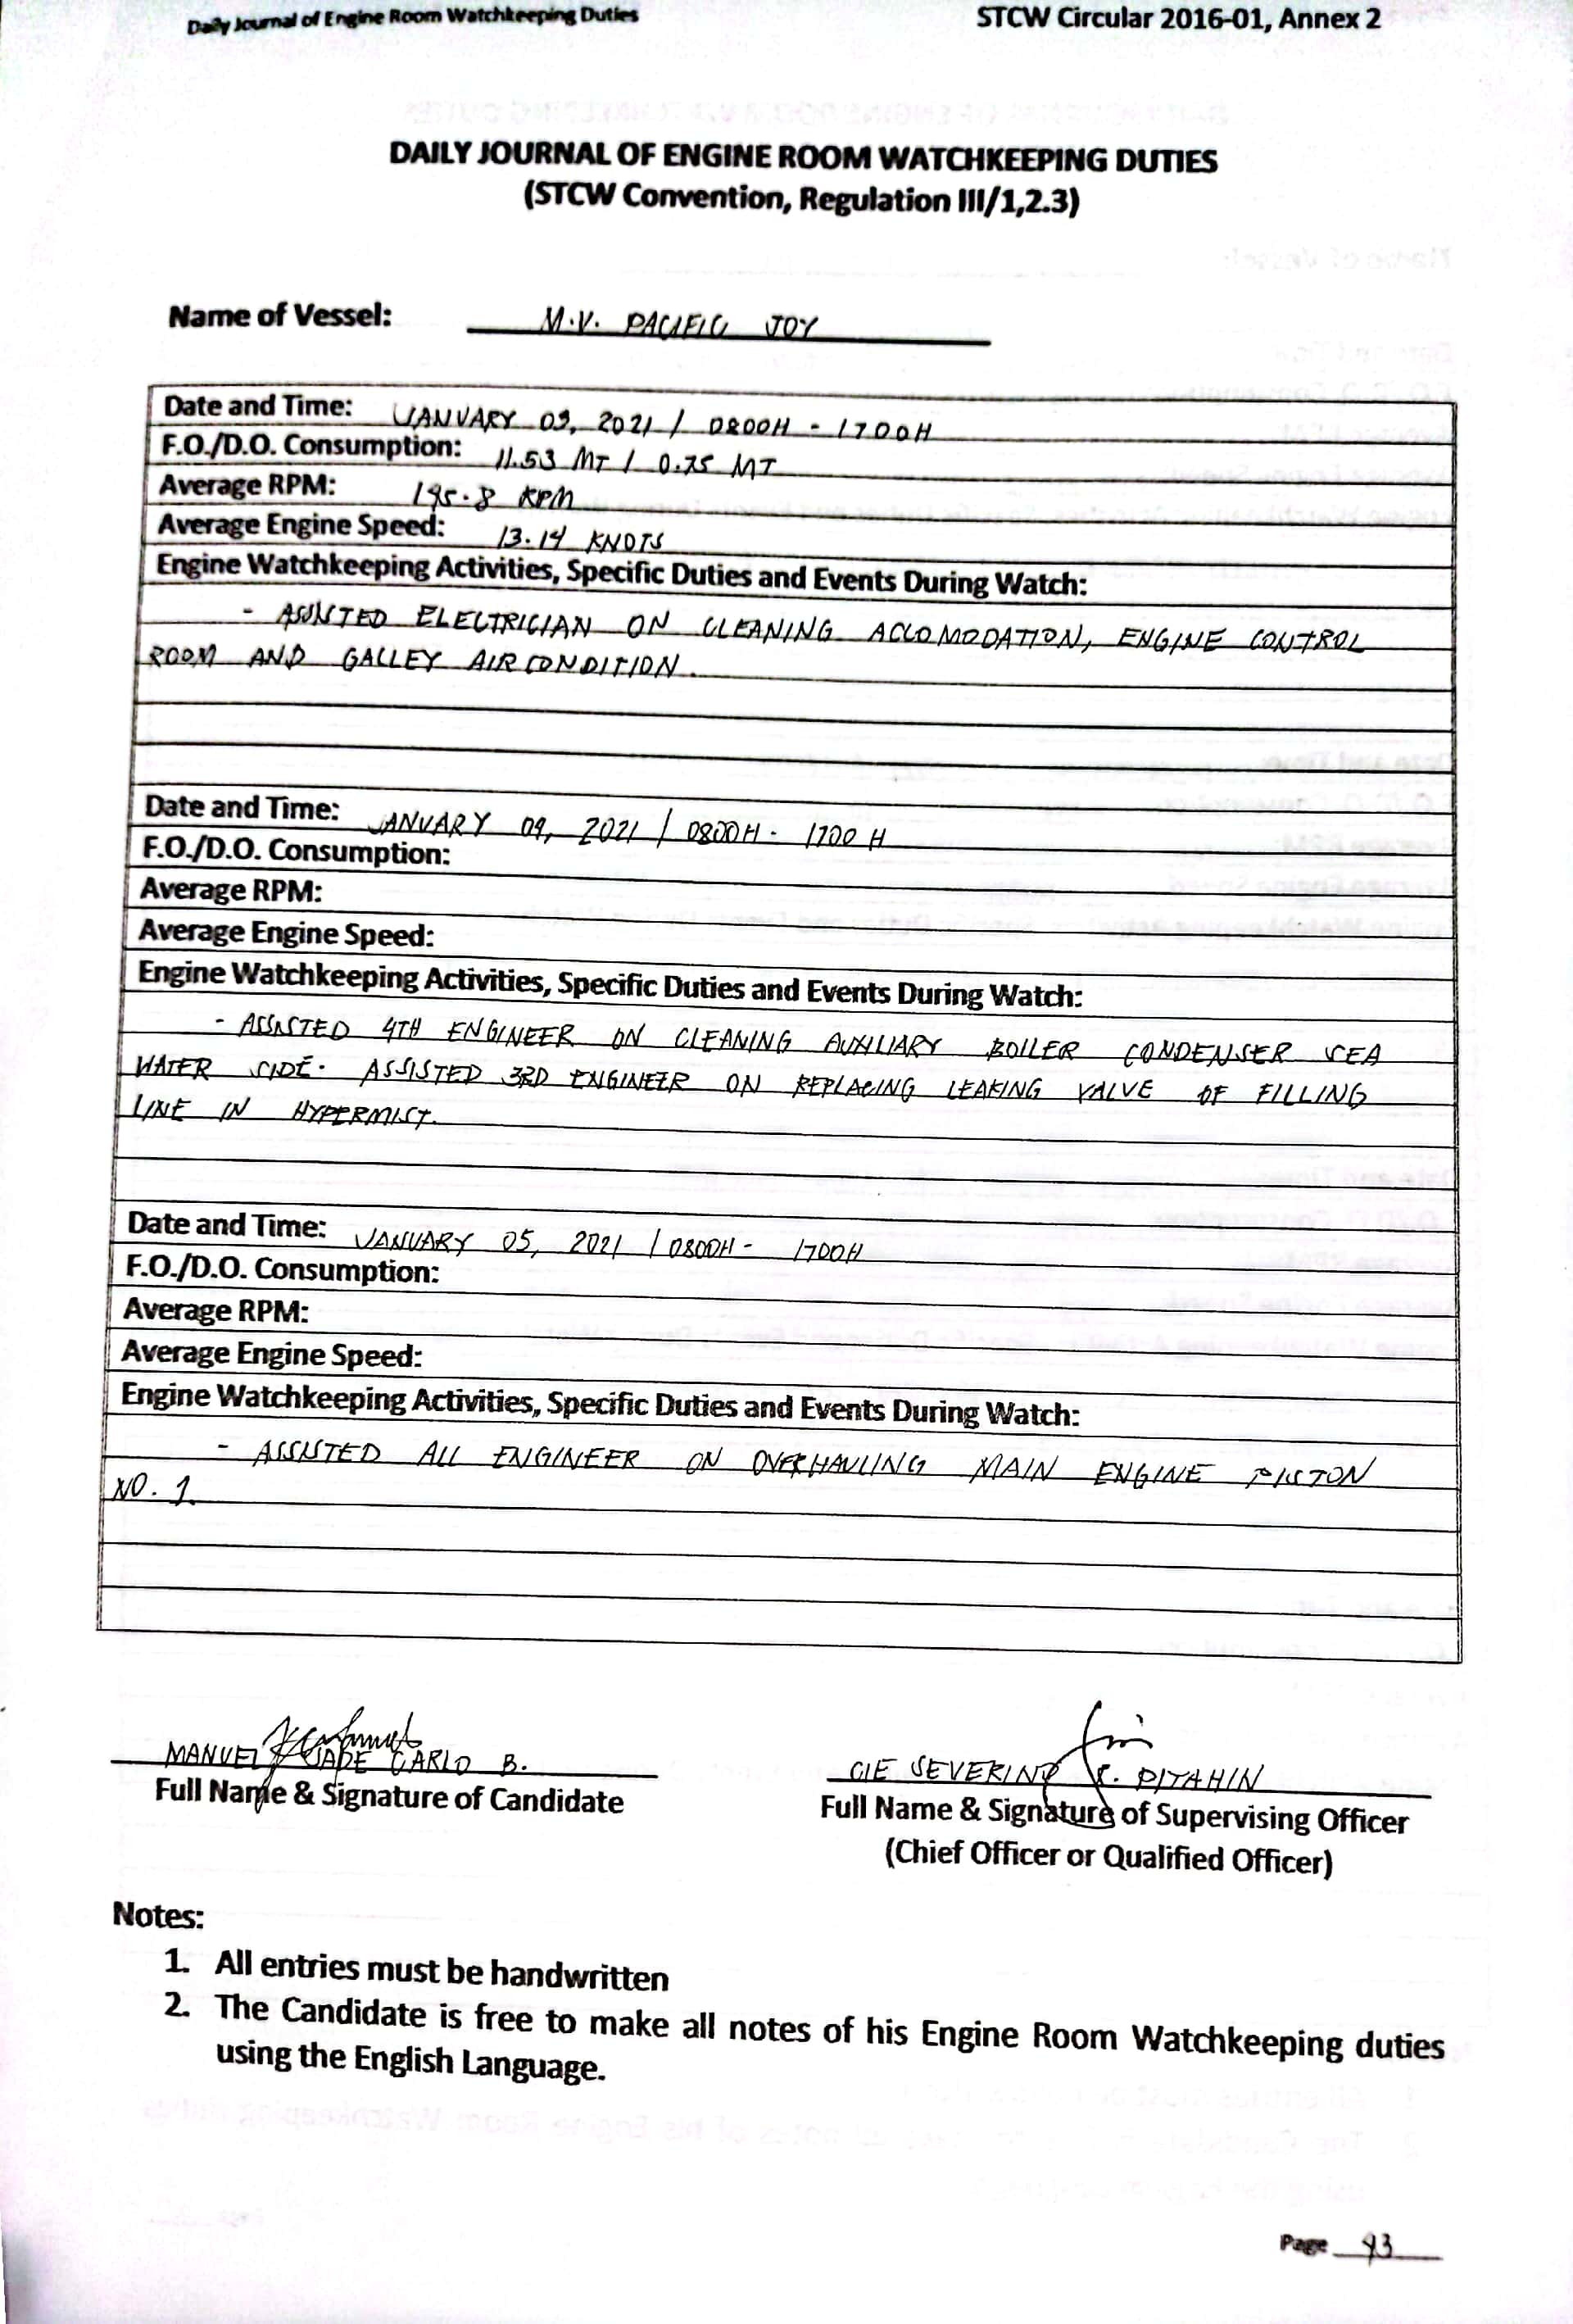 Daily Journal of Engine Room Watchkeeping Duties STCW Circular 2016-01, Annex 2
DAILY JOURNAL OF ENGINE ROOM WATCHKEEPING DUTIES
(STCW Convention, Regulation III/1,2.3)
Name of Vessel: M.V. PACIFIC JOY
Date and Time: JANUARY 03, 2021 / 0800H - 1700H
F.O./D.O. Consumption: 11.53 MT / 0.75 MT
Average RPM: 195.8 RPM
Average Engine Speed: 13.14 KNOTS
Engine Watchkeeping Activities, Specific Duties and Events During Watch:
- ASSISTED ELECTRICIAN ON CLEANING ACCOMODATION, ENGINE CONTROL
ROOM AND GALLEY AIRCONDITION.
Date and Time: JANUARY 04, 2021 / 0800H - 1700H
F.O./D.O. Consumption:
Average RPM:
Average Engine Speed:
Engine Watchkeeping Activities, Specific Duties and Events During Watch:
- ASSISTED 4TH ENGINEER ON CLEANING AUXILIARY BOILER CONDENSER SEA
WATER SIDE. ASSISTED 3RD ENGINEER ON REPLACING LEAKING VALVE OF FILLING
LINE IN HYPERMIST.
Date and Time: JANUARY 05, 2021 / 0800H - 1700H
F.O./D.O. Consumption:
Average RPM:
Average Engine Speed:
Engine Watchkeeping Activities, Specific Duties and Events During Watch:
- ASSISTED ALL ENGINEER ON OVERHAULING MAIN ENGINE PISTON
NO. 1.
MANUEL JADE CARLO B. C/E SEVERINO R. PITAHIN
Full Name & Signature of Candidate Full Name & Signature of Supervising Officer
(Chief Officer or Qualified Officer)
Notes:
1. All entries must be handwritten
2. The Candidate is free to make all notes of his Engine Room Watchkeeping duties
using the English Language.
Page 43